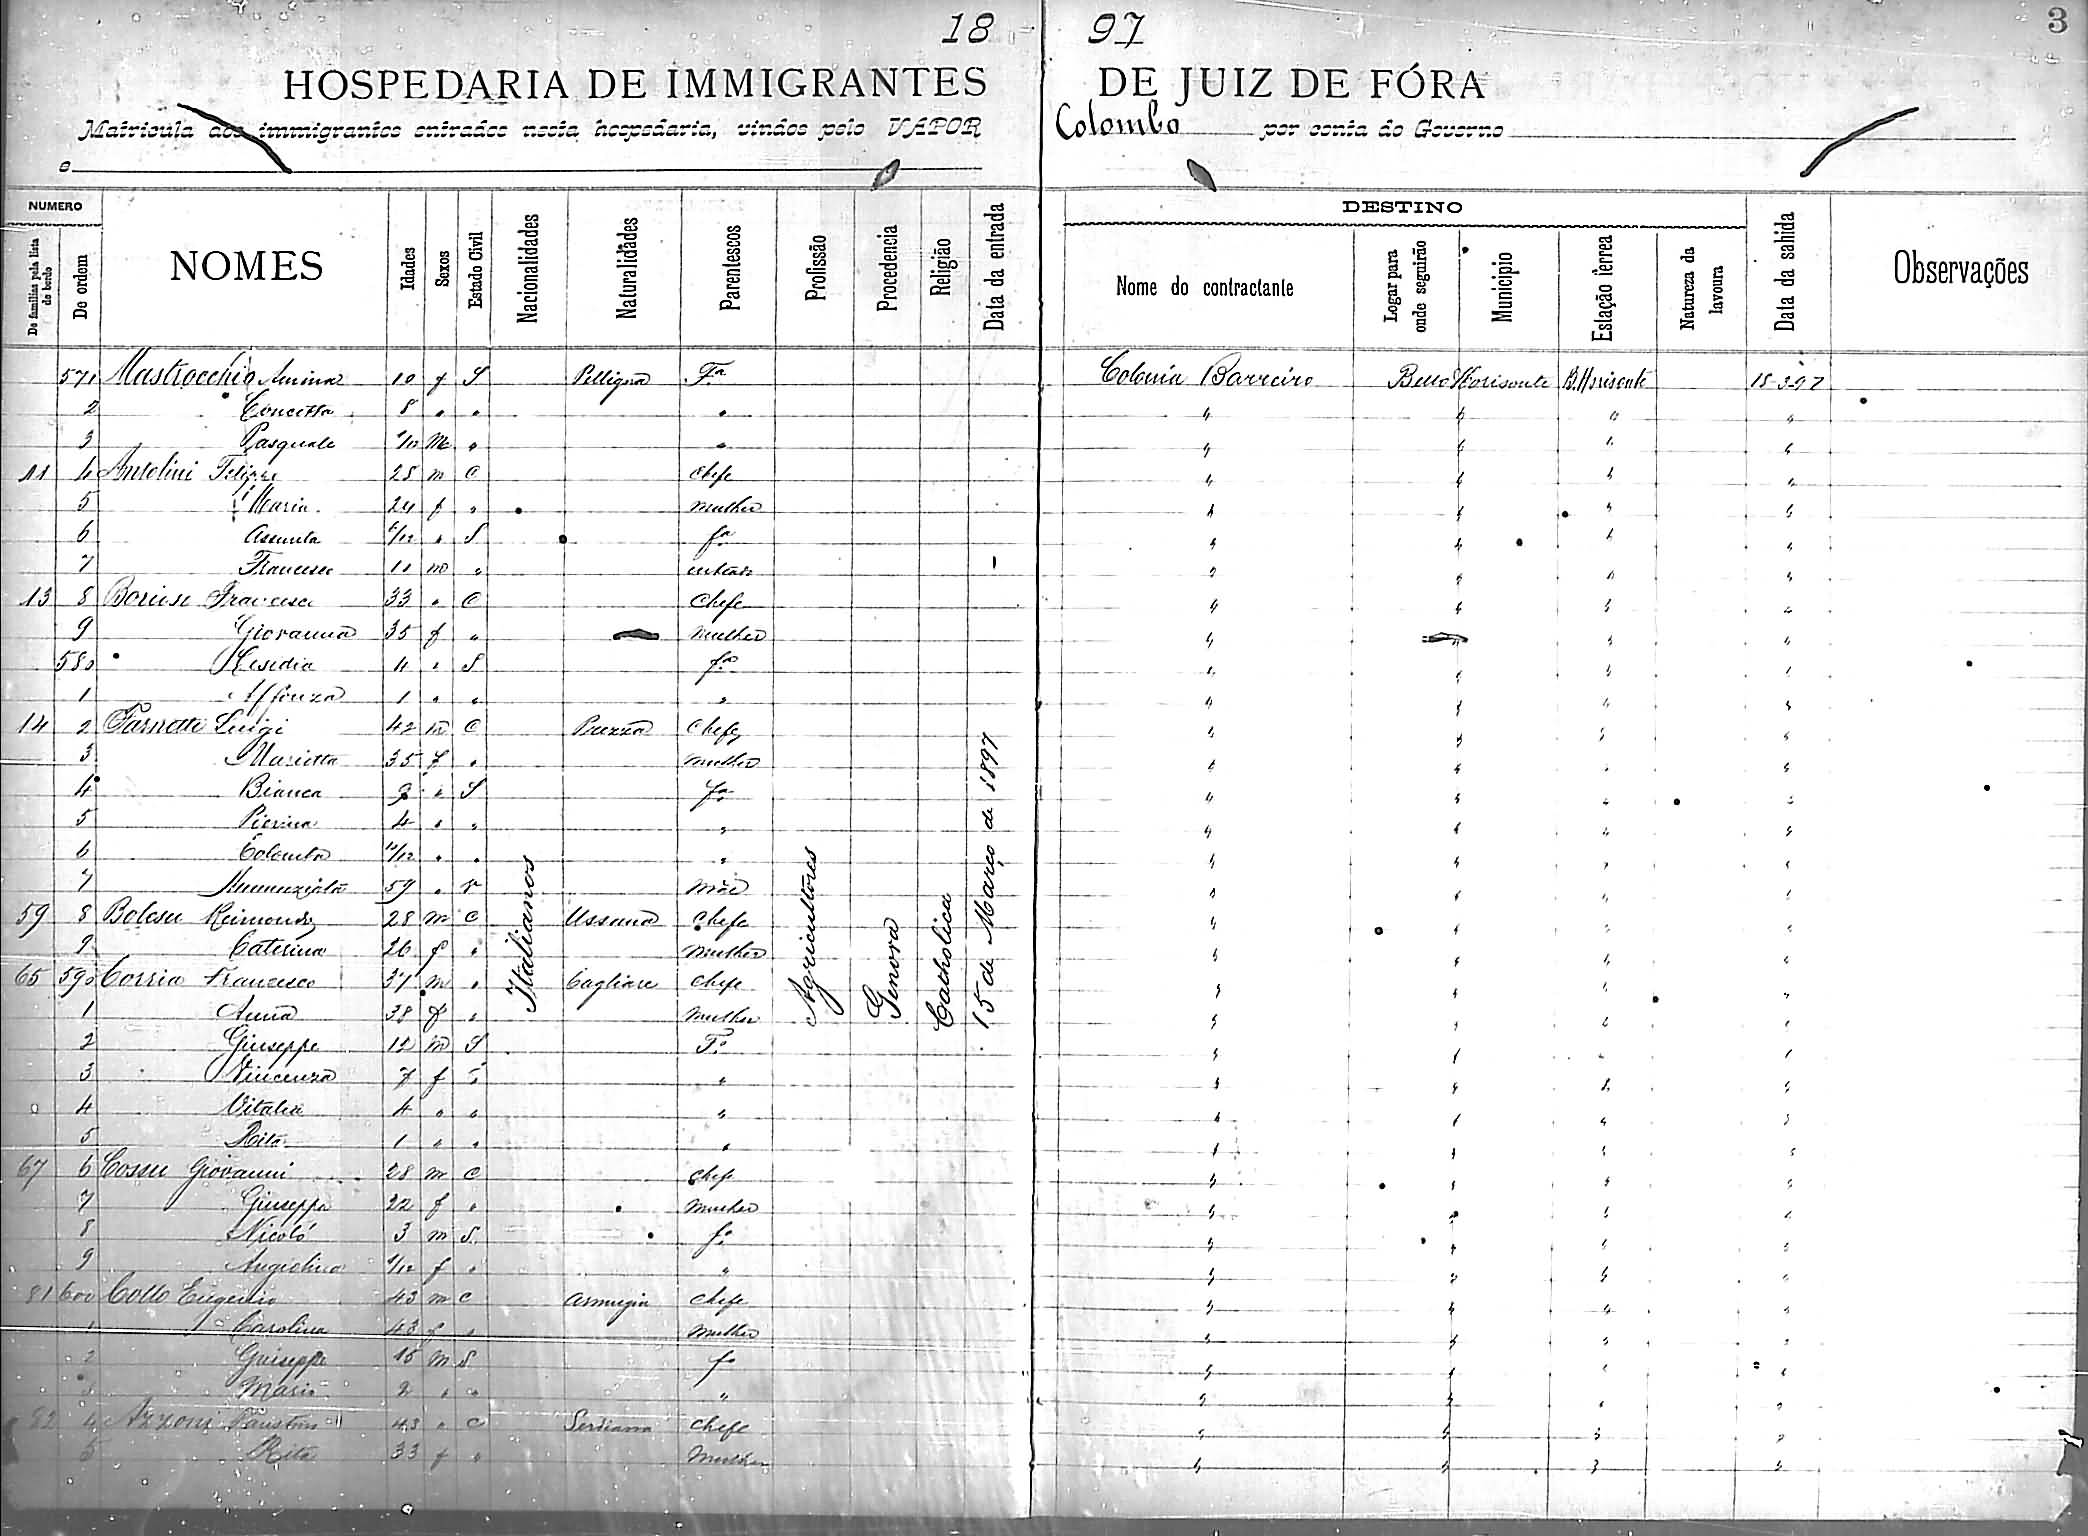 18 97
3
HOSPEDARIA DE IMMIGRANTES DE JUIZ DE FÓRA
Matricula dos immigrantes entrados nesta hospedaria, vindos pelo VAPOR Colombo por conta do Governo
e
NUMERO DESTINO
De familias pela lista do bordo De ordem NOMES Idades Sexos Estado Civil Nacionalidades Naturalidades Parentescos Profissão Procedencia Religião Data da entrada Nome do contractante Logar para onde seguirão Municipio Estação ferrea Natureza da lavoura Data da sahida Observações
571 Mastrocchio 10 f S F.a Colonia Barreiro Bello Horisonte B. Horisonte 18-3-97
2 Concetta 8 " " " " " " "
3 Pasquale M " " " " " "
11 4 Antolini 28 m C Chefe " " " "
5 Maria 24 f " mulher " " " "
6 Assunta 6/12 " S f.a " " " "
7 Francesco 11 m " " " " "
13 8 Francesco 33 " C Chefe " " " "
9 Giovanna 35 f " mulher " " " "
580 4 " S f.a " " " "
1 1 " " " " " " "
14 2 Luigi 42 m C Prezza Chefe " " " "
3 Marietta 35 f " mulher " " " "
4 Bianca 9 " S f.a " " " "
5 Pierina 4 " " " " " " "
6 Colomba 11/12 " " " " " " "
7 59 " v mãe " " " "
59 8 Bolesu Raimondo 28 m C Ussana Chefe " " " "
9 Caterina 26 f " Mulher " " " "
65 590 Corria Francesco 37 m " Cagliare Chefe " " " "
1 Anna 38 f " Mulher " " " "
2 Giuseppe 12 m S F.o " " " "
3 Vincenza 7 f " " " " " "
4 Vitalia 4 " " " " " " "
5 Rita 1 " " " " " " "
67 6 Cossu Giovanni 28 m C Chefe " " " "
7 Giuseppa 22 f " Mulher " " " "
8 Nicoló 3 m S. f.o " " " "
9 Angiolina f " " " " " "
81 600 Collo Eugenio 43 m C Armugia Chefe " " " "
1 Carolina 43 f " Mulher " " " "
2 Giuseppe 15 m S f.o " " " "
3 Mario 2 " " " " " " "
82 4 Azzoni Faustino 43 " C Serdiana Chefe " " " "
5 Rita 33 f " Mulher " " " "
Italianos
Agricultores
Genova
Catholica
15 de Março de 1897